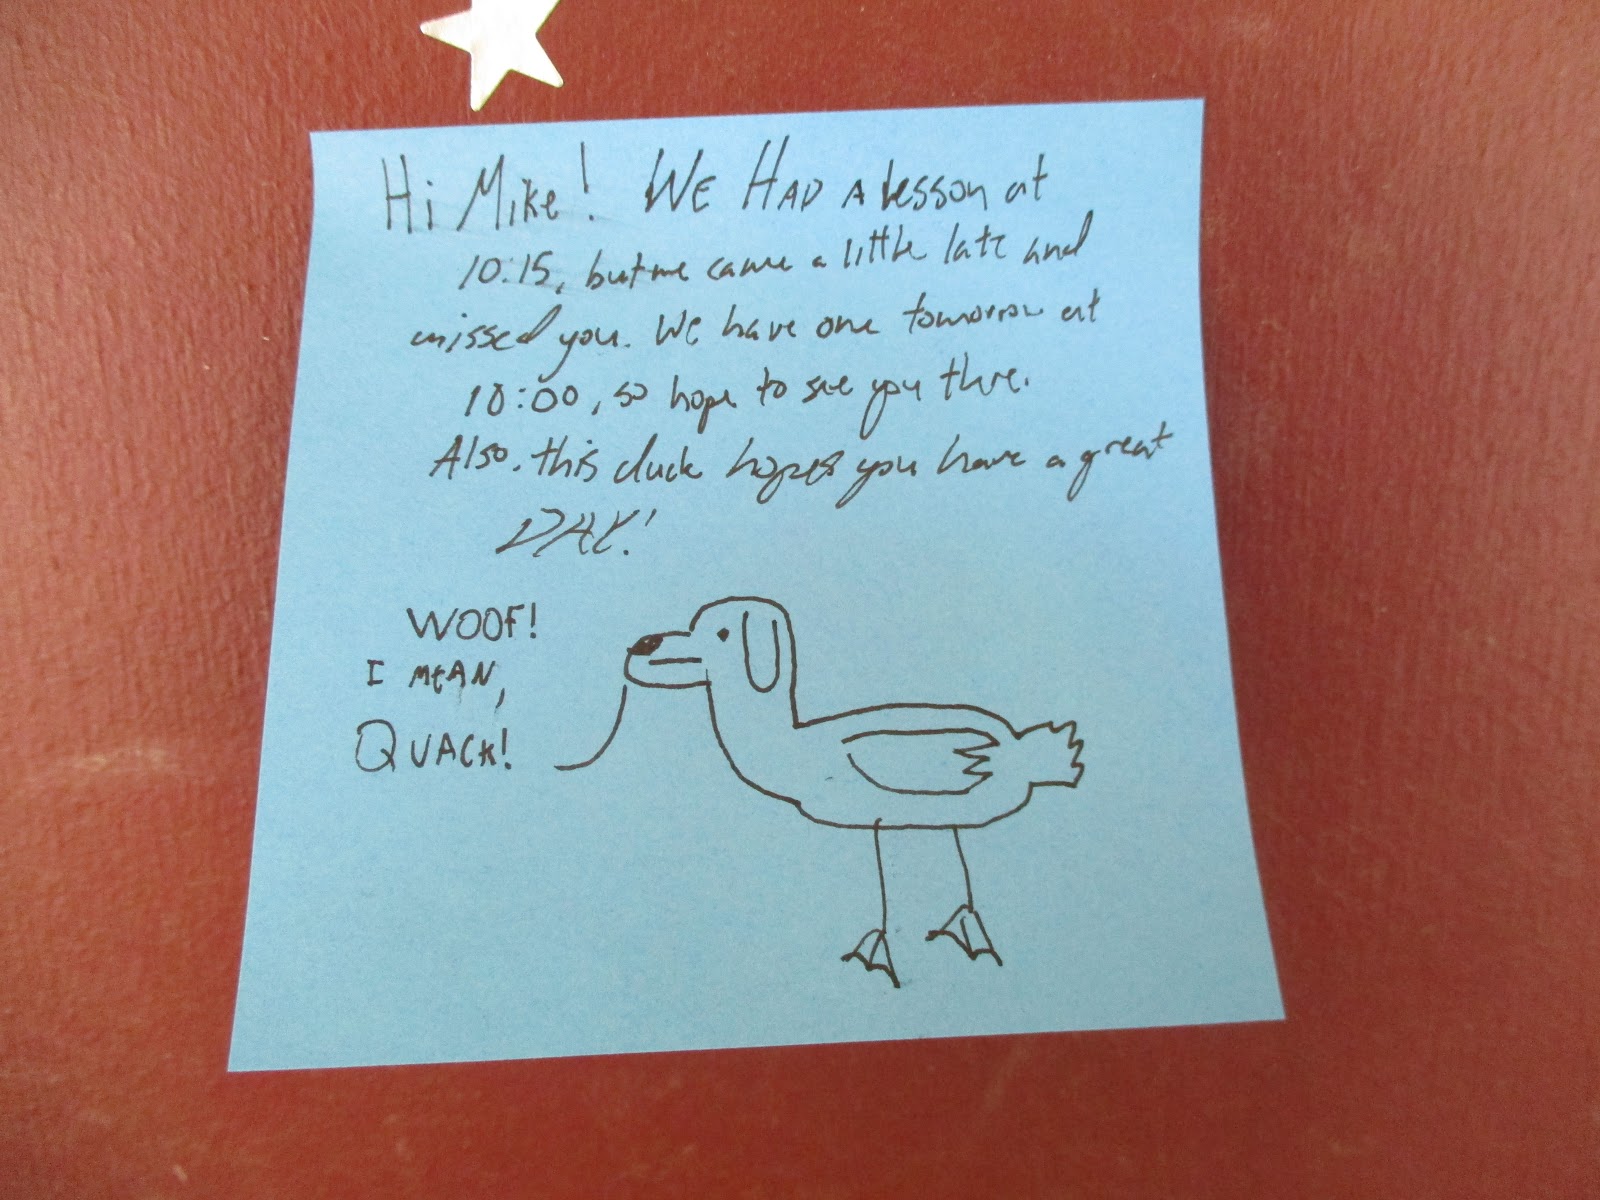 Hi Mike! WE HAD A lesson at
10:15, but we came a little late and
missed you. We have one tomorrow at
10:00, so hope to see you there.
Also, this duck hopes you have a great
DAY!
WOOF!
I MEAN,
QUACK!